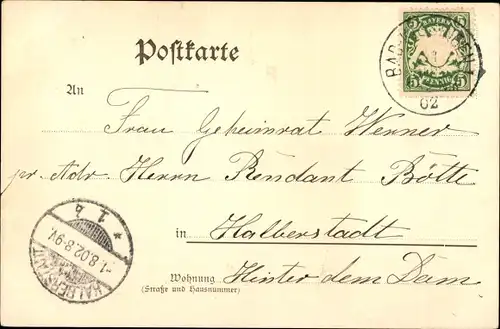 Postkarte
BAYERN
5 5
PFENNIG
BAD
02
An
Frau Geheimrat Werner
pr. Adr. Herrn Rendant Bötte
in Halberstadt
Wohnung Hinter dem Dom
(Straße und Hausnummer)
* 1 a
-1.8.02.8-9V.
HALBERSTADT